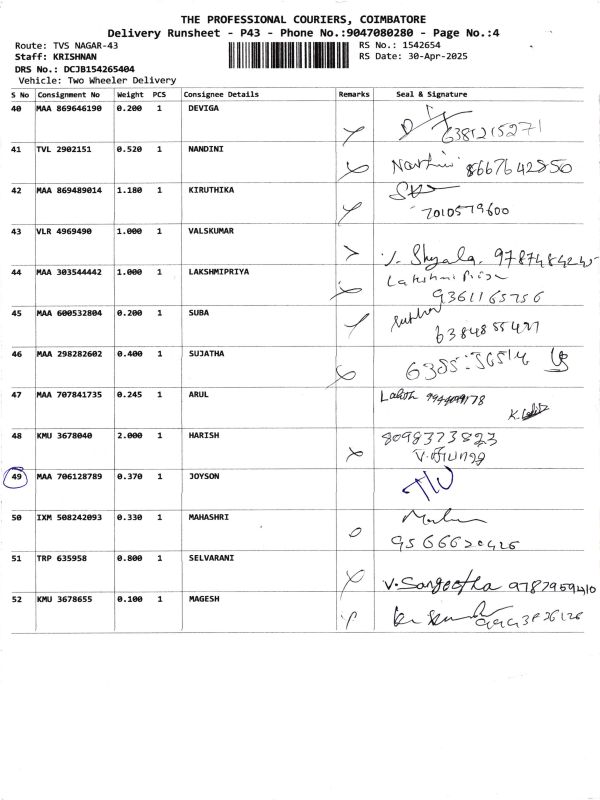 THE PROFESSIONAL COURIERS, COIMBATORE
Delivery Runsheet - P43 - Phone No.:9047080280 - Page No.:4
Route: TVS NAGAR-43
RS No.: 1542654
Staff: KRISHNAN
RS Date: 30-Apr-2025
DRS No.: DCJB154265404
Vehicle: Two Wheeler Delivery
S No Consignment No Weight PCS Consignee Details Remarks Seal & Signature
40 MAA 869646190 0.200 1 DEVIGA
6381215271
41 TVL 2902151 0.520 1 NANDINI
Nandhini 8667642850
42 MAA 869489014 1.180 1 KIRUTHIKA
7010579600
43 VLR 4969490 1.000 1 VALSKUMAR
V. Shyala.
44 MAA 303544442 1.000 1 LAKSHMIPRIYA
Lakshmi Priya
9361165756
45 MAA 600532804 0.200 1 SUBA
6384855427
46 MAA 298282602 0.400 1 SUJATHA
47 MAA 707841735 0.245 1 ARUL
48 KMU 3678040 2.000 1 HARISH
8098373823
49 MAA 706128789 0.370 1 JOYSON
50 IXM 508242093 0.330 1 MAHASHRI
9566620426
51 TRP 635958 0.800 1 SELVARANI
V. Sangeetha 9787959410
52 KMU 3678655 0.100 1 MAGESH